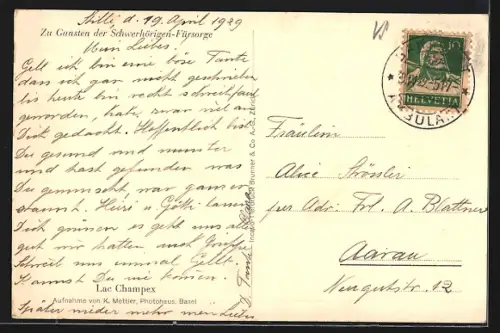 Stilli d. 19. April 1929
Zu Gunsten der Schwerhörigen-Fürsorge
Mein Liebes!
Gelt ich bin eine böse Tante
dass ich gar nicht geschrieben
bis heute bin recht schreibfaul
geworden, habe zwar viel an
Dich gedacht. Hoffentlich bist
Du gesund und munter
und hast gefunden was
Du gewünscht, war ganz
Heini u Götti lassen
Dich grüssen es geht uns allen
gut wir hatten auch Grippe
Schreib uns einmal Gelt.
Kannst Du nie kommen.
Lac Champex
Aufnahme von K. Mettler, Photohaus, Basel
Später wieder mehr mein Liebes
D. Tante
Brunner & Co. A.G., Zürich
10
HELVETIA
AMBULANT
Fräulein
Alice Strössler
per Adr. Frl. A. Blattner
Aarau
Neugutstr. 12